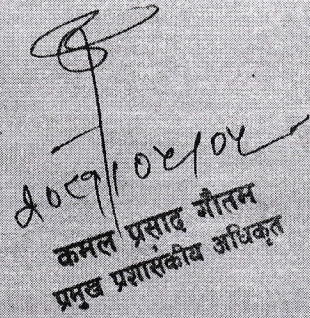 २०८१/०४/०४
कमल प्रसाद गौतम
प्रमुख प्रशासकीय अधिकृत